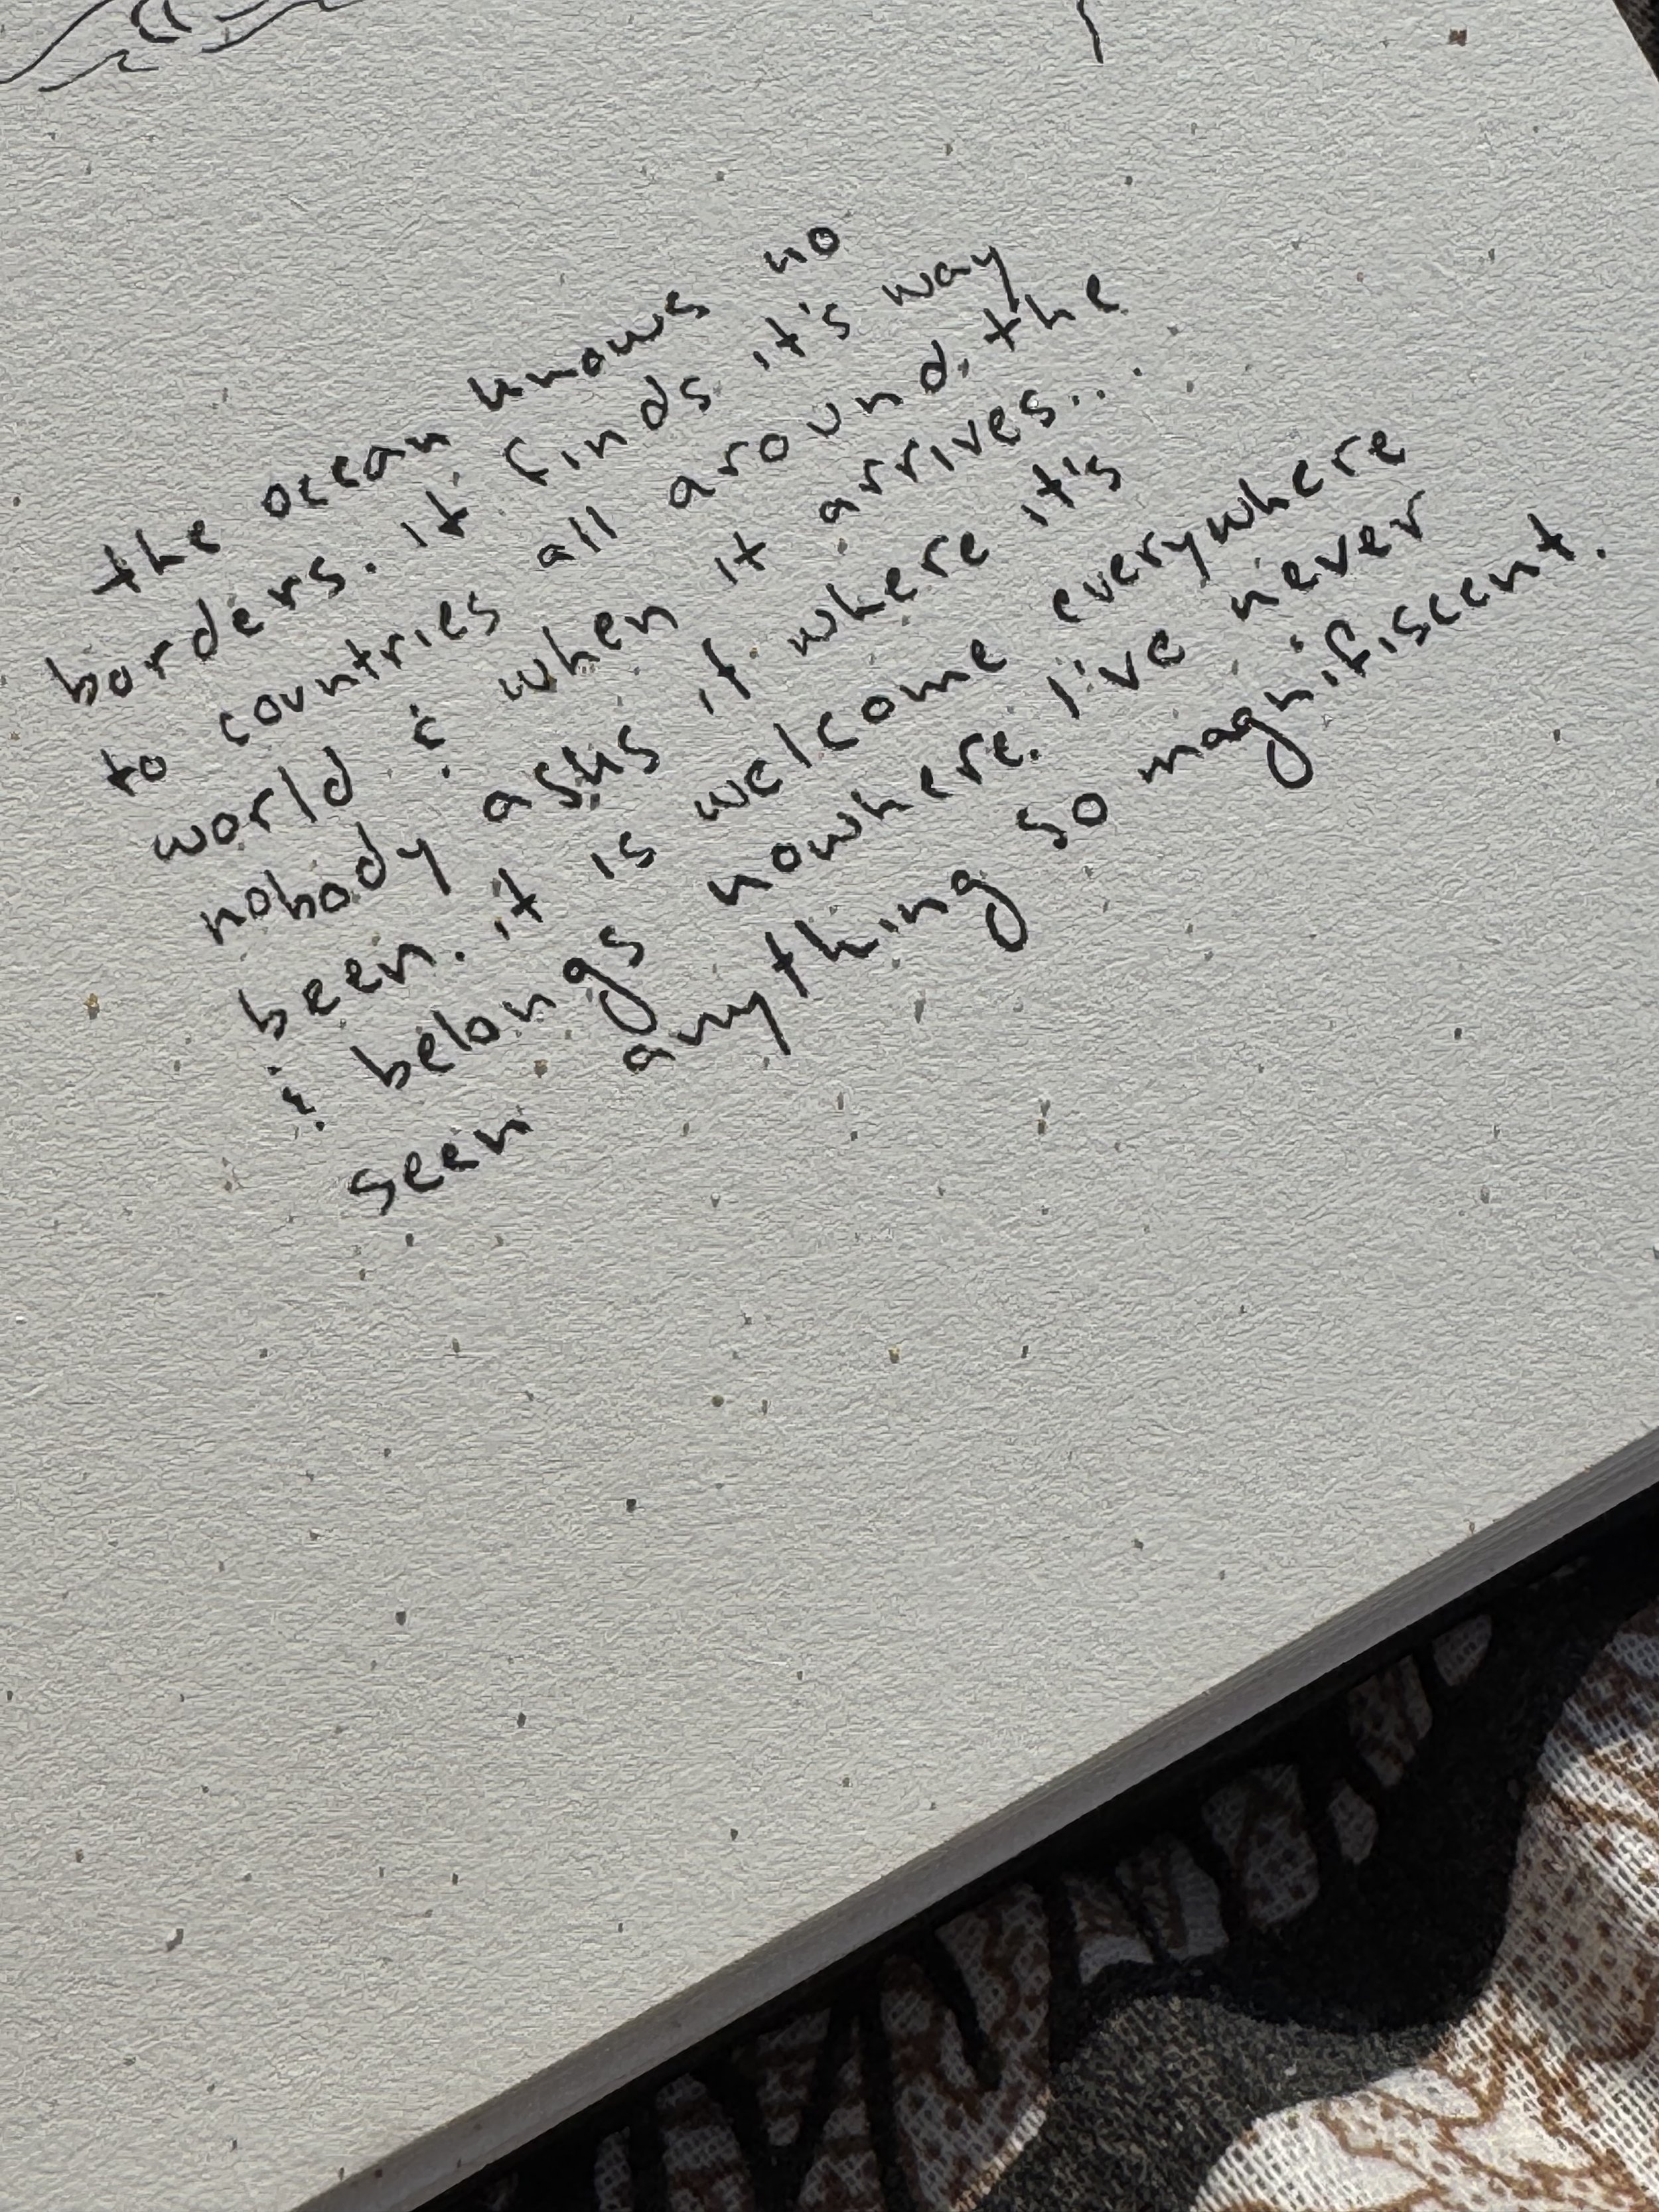 the ocean knows no
borders. it finds it's way
to countries all around the
world & when it arrives...
nobody asks it where it's
been. it is welcome everywhere
& belongs nowhere. I've never
seen anything so magnifiscent.